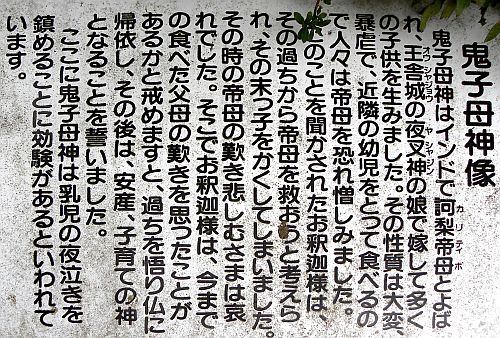 鬼子母神像
鬼子母神は、インドで訶梨帝母とよば
れ、王舎城の夜叉神の娘で嫁して多く
の子供を生みました。その性質は大変、
暴虐で、近隣の幼児をとって食べるの
で人々は帝母を恐れ憎しみました。
のことを聞かされたお釈迦様は、
その過ちから帝母を救おうと考えら
れ、その末っ子をかくしてしまいました。
その時の帝母の歎き悲しむさまは哀
れでした。そこでお釈迦様は、今まで
の食べた父母の歎きを思ったことが
あるかと戒めますと、過ちを悟り仏に
帰依し、その後は、安産、子育ての神
となることを誓いました。
ここに鬼子母神は乳児の夜泣きを
鎮めることに効験があるといわれて
います。
カリテイボ
オウシャジョウ
ヤシャジン